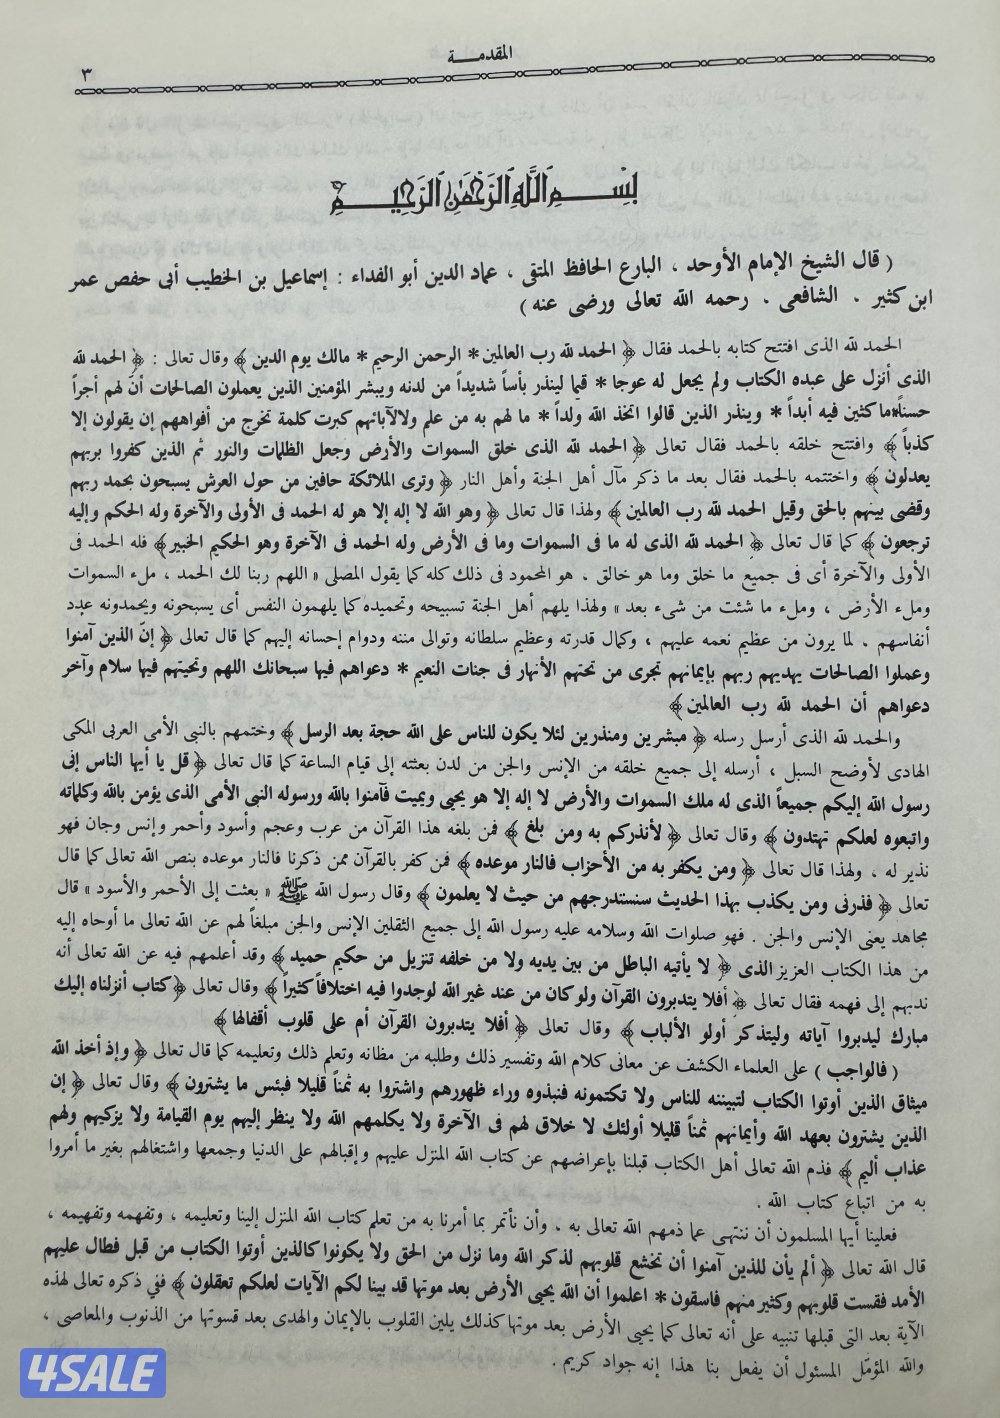 المقدمـــة
٣
بسم الله الرحمن الرحيم
( قال الشيخ الإمام الأوحد ، البارع الحافظ المتقى ، عماد الدين أبو الفداء : إسماعيل بن الخطيب أبى حفص عمر
ابن كثير . الشافعى . رحمه الله تعالى ورضى عنه )
الحمد لله الذى افتتح كتابه بالحمد فقال ﴿ الحمد لله رب العالمين * الرحمن الرحيم * مالك يوم الدين ﴾ وقال تعالى : ﴿ الحمد لله
الذى أنزل على عبده الكتاب ولم يجعل له عوجا * قيما لينذر بأساً شديداً من لدنه ويبشر المؤمنين الذين يعملون الصالحات أنّ لهم أجراً
حسناً*ما كثين فيه أبداً * وينذر الذين قالوا اتخذ الله ولداً * ما لهم به من علم ولالآبائهم كبرت كلمة تخرج من أفواههم إن يقولون إلا
كذباً ﴾ وافتتح خلقه بالحمد فقال تعالى ﴿ الحمد لله الذى خلق السموات والأرض وجعل الظلمات والنور ثم الذين كفروا بربهم
يعدلون ﴾ واختتمه بالحمد فقال بعد ما ذكر مآل أهل الجنة وأهل النار ﴿ وترى الملائكة حافين من حول العرش يسبحون بحمد ربهم
وقضى بينهم بالحق وقيل الحمد لله رب العالمين ﴾ ولهذا قال تعالى ﴿ وهو الله لا إله إلا هو له الحمد فى الأولى والآخرة وله الحكم وإليه
ترجعون ﴾ كما قال تعالى ﴿ الحمد لله الذى له ما فى السموات وما فى الأرض وله الحمد فى الآخرة وهو الحكيم الخبير ﴾ فله الحمد فى
الأولى والآخرة أى فى جميع ما خلق وما هو خالق . هو المحمود فى ذلك كله كما يقول المصلى « اللهم ربنا لك الحمد ، ملء السموات
وملء الأرض ، وملء ما شئت من شىء بعد » ولهذا يلهم أهل الجنة تسبيحه وتحميده كما يلهمون النفس أى يسبحونه ويحمدونه عدد
أنفاسهم . لما يرون من عظيم نعمه عليهم ، وكمال قدرته وعظيم سلطانه وتوالى مننه ودوام إحسانه إليهم كما قال تعالى ﴿ إنّ الذين آمنوا
وعملوا الصالحات يهديهم ربهم بإيمانهم تجرى من تحتهم الأنهار فى جنات النعيم * دعواهم فيها سبحانك اللهم وتحيتهم فيها سلام وآخر
دعواهم أن الحمد لله رب العالمين ﴾
والحمد لله الذى أرسل رسله ﴿ مبشرين ومنذرين لئلا يكون للناس على الله حجة بعد الرسل ﴾ وختمهم بالنبى الأمى العربى المكى
الهادى لأوضح السبل ، أرسله إلى جميع خلقه من الإنس والجن من لدن بعثته إلى قيام الساعة كما قال تعالى ﴿ قل يا أيها الناس إنى
رسول الله إليكم جميعاً الذى له ملك السموات والأرض لا إله إلا هو يحيى ويميت فآمنوا بالله ورسوله النبى الأمى الذى يؤمن بالله وكلماته
واتبعوه لعلكم تهتدون ﴾ وقال تعالى ﴿ لأنذركم به ومن بلغ ﴾ فمن بلغه هذا القرآن من عرب وعجم وأسود وأحمر وإنس وجان فهو
نذير له ، ولهذا قال تعالى ﴿ ومن يكفر به من الأحزاب فالنار موعده ﴾ فمن كفر بالقرآن ممن ذكرنا فالنار موعده بنص الله تعالى كما قال
تعالى ﴿ فذرنى ومن يكذب بهذا الحديث سنستدرجهم من حيث لا يعلمون ﴾ وقال رسول الله ﷺ « بعثت إلى الأحمر والأسود » قال
مجاهد يعنى الإنس والجن . فهو صلوات الله وسلامه عليه رسول الله إلى جميع الثقلين الإنس والجن مبلغاً لهم عن الله تعالى ما أوحاه إليه
من هذا الكتاب العزيز الذى ﴿ لا يأتيه الباطل من بين يديه ولا من خلفه تنزيل من حكيم حميد ﴾ وقد أعلمهم فيه عن الله تعالى أنه
ندبهم إلى فهمه فقال تعالى ﴿ أفلا يتدبرون القرآن ولو كان من عند غير الله لوجدوا فيه اختلافاً كثيراً ﴾ وقال تعالى ﴿ كتاب أنزلناه إليك
مبارك ليدبروا آياته وليتذكر أولو الألباب ﴾ وقال تعالى ﴿ أفلا يتدبرون القرآن أم على قلوب أقفالها ﴾
( فالواجب ) على العلماء الكشف عن معانى كلام الله وتفسير ذلك وطلبه من مظانه وتعلم ذلك وتعليمه كما قال تعالى ﴿ وإذ أخذ الله
ميثاق الذين أوتوا الكتاب لتبيننه للناس ولا تكتمونه فنبذوه وراء ظهورهم واشتروا به ثمناً قليلا فبئس ما يشترون ﴾ وقال تعالى ﴿ إن
الذين يشترون بعهد الله وأيمانهم ثمناً قليلا أولئك لا خلاق لهم فى الآخرة ولا يكلمهم الله ولا ينظر إليهم يوم القيامة ولا يزكيهم ولهم
عذاب أليم ﴾ فذم الله تعالى أهل الكتاب قبلنا بإعراضهم عن كتاب الله المنزل عليهم وإقبالهم على الدنيا وجمعها واشتغالهم بغير ما أمروا
به من اتباع كتاب الله .
فعلينا أيها المسلمون أن ننتهى عما ذمهم الله تعالى به ، وأن نأتمر بما أمرنا به من تعلم كتاب الله المنزل إلينا وتعليمه ، وتفهمه وتفهيمه ،
قال الله تعالى ﴿ ألم يأن للذين آمنوا أن تخشع قلوبهم لذكر الله وما نزل من الحق ولا يكونوا كالذين أوتوا الكتاب من قبل فطال عليهم
الأمد فقست قلوبهم وكثير منهم فاسقون * اعلموا أن الله يحيى الأرض بعد موتها قد بينا لكم الآيات لعلكم تعقلون ﴾ ففى ذكره تعالى لهذه
الآية بعد التى قبلها تنبيه على أنه تعالى كما يحيى الأرض بعد موتها كذلك يلين القلوب بالإيمان والهدى بعد قسوتها من الذنوب والمعاصى ،
والله المؤمّل المسئول أن يفعل بنا هذا إنه جواد كريم .
4SALE